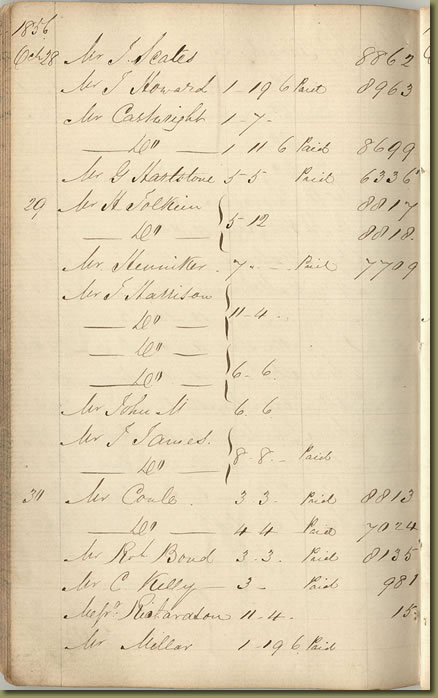 1856
Oct 28 Mr J. Scates 8862
Mr J Howard 1-19 6 Paid 8963
Mr Cartwright 1-7-
— Do — 1 11 6 Paid 8699
Mr G Hartstone 5-5 Paid 6336
29 Mr H Tolkein 8817
— Do — 5-12 8818
Mr Henniker 7 - - Paid 7709
Mr J Harrison
— Do — 11-4
— Do —
— Do — 6-6
Mr John M 6-6
Mr J James.
— Do — 8-8- Paid
30 Mr Coule 3 3 Paid 8813
— Do — 4 4 Paid 7024
Mr Robt Bond 3-3. Paid 8135
Mr C. Kelly 3- Paid 981
Messrs Richardson 11-4- 15
Mr Millar 1-19 6 Paid